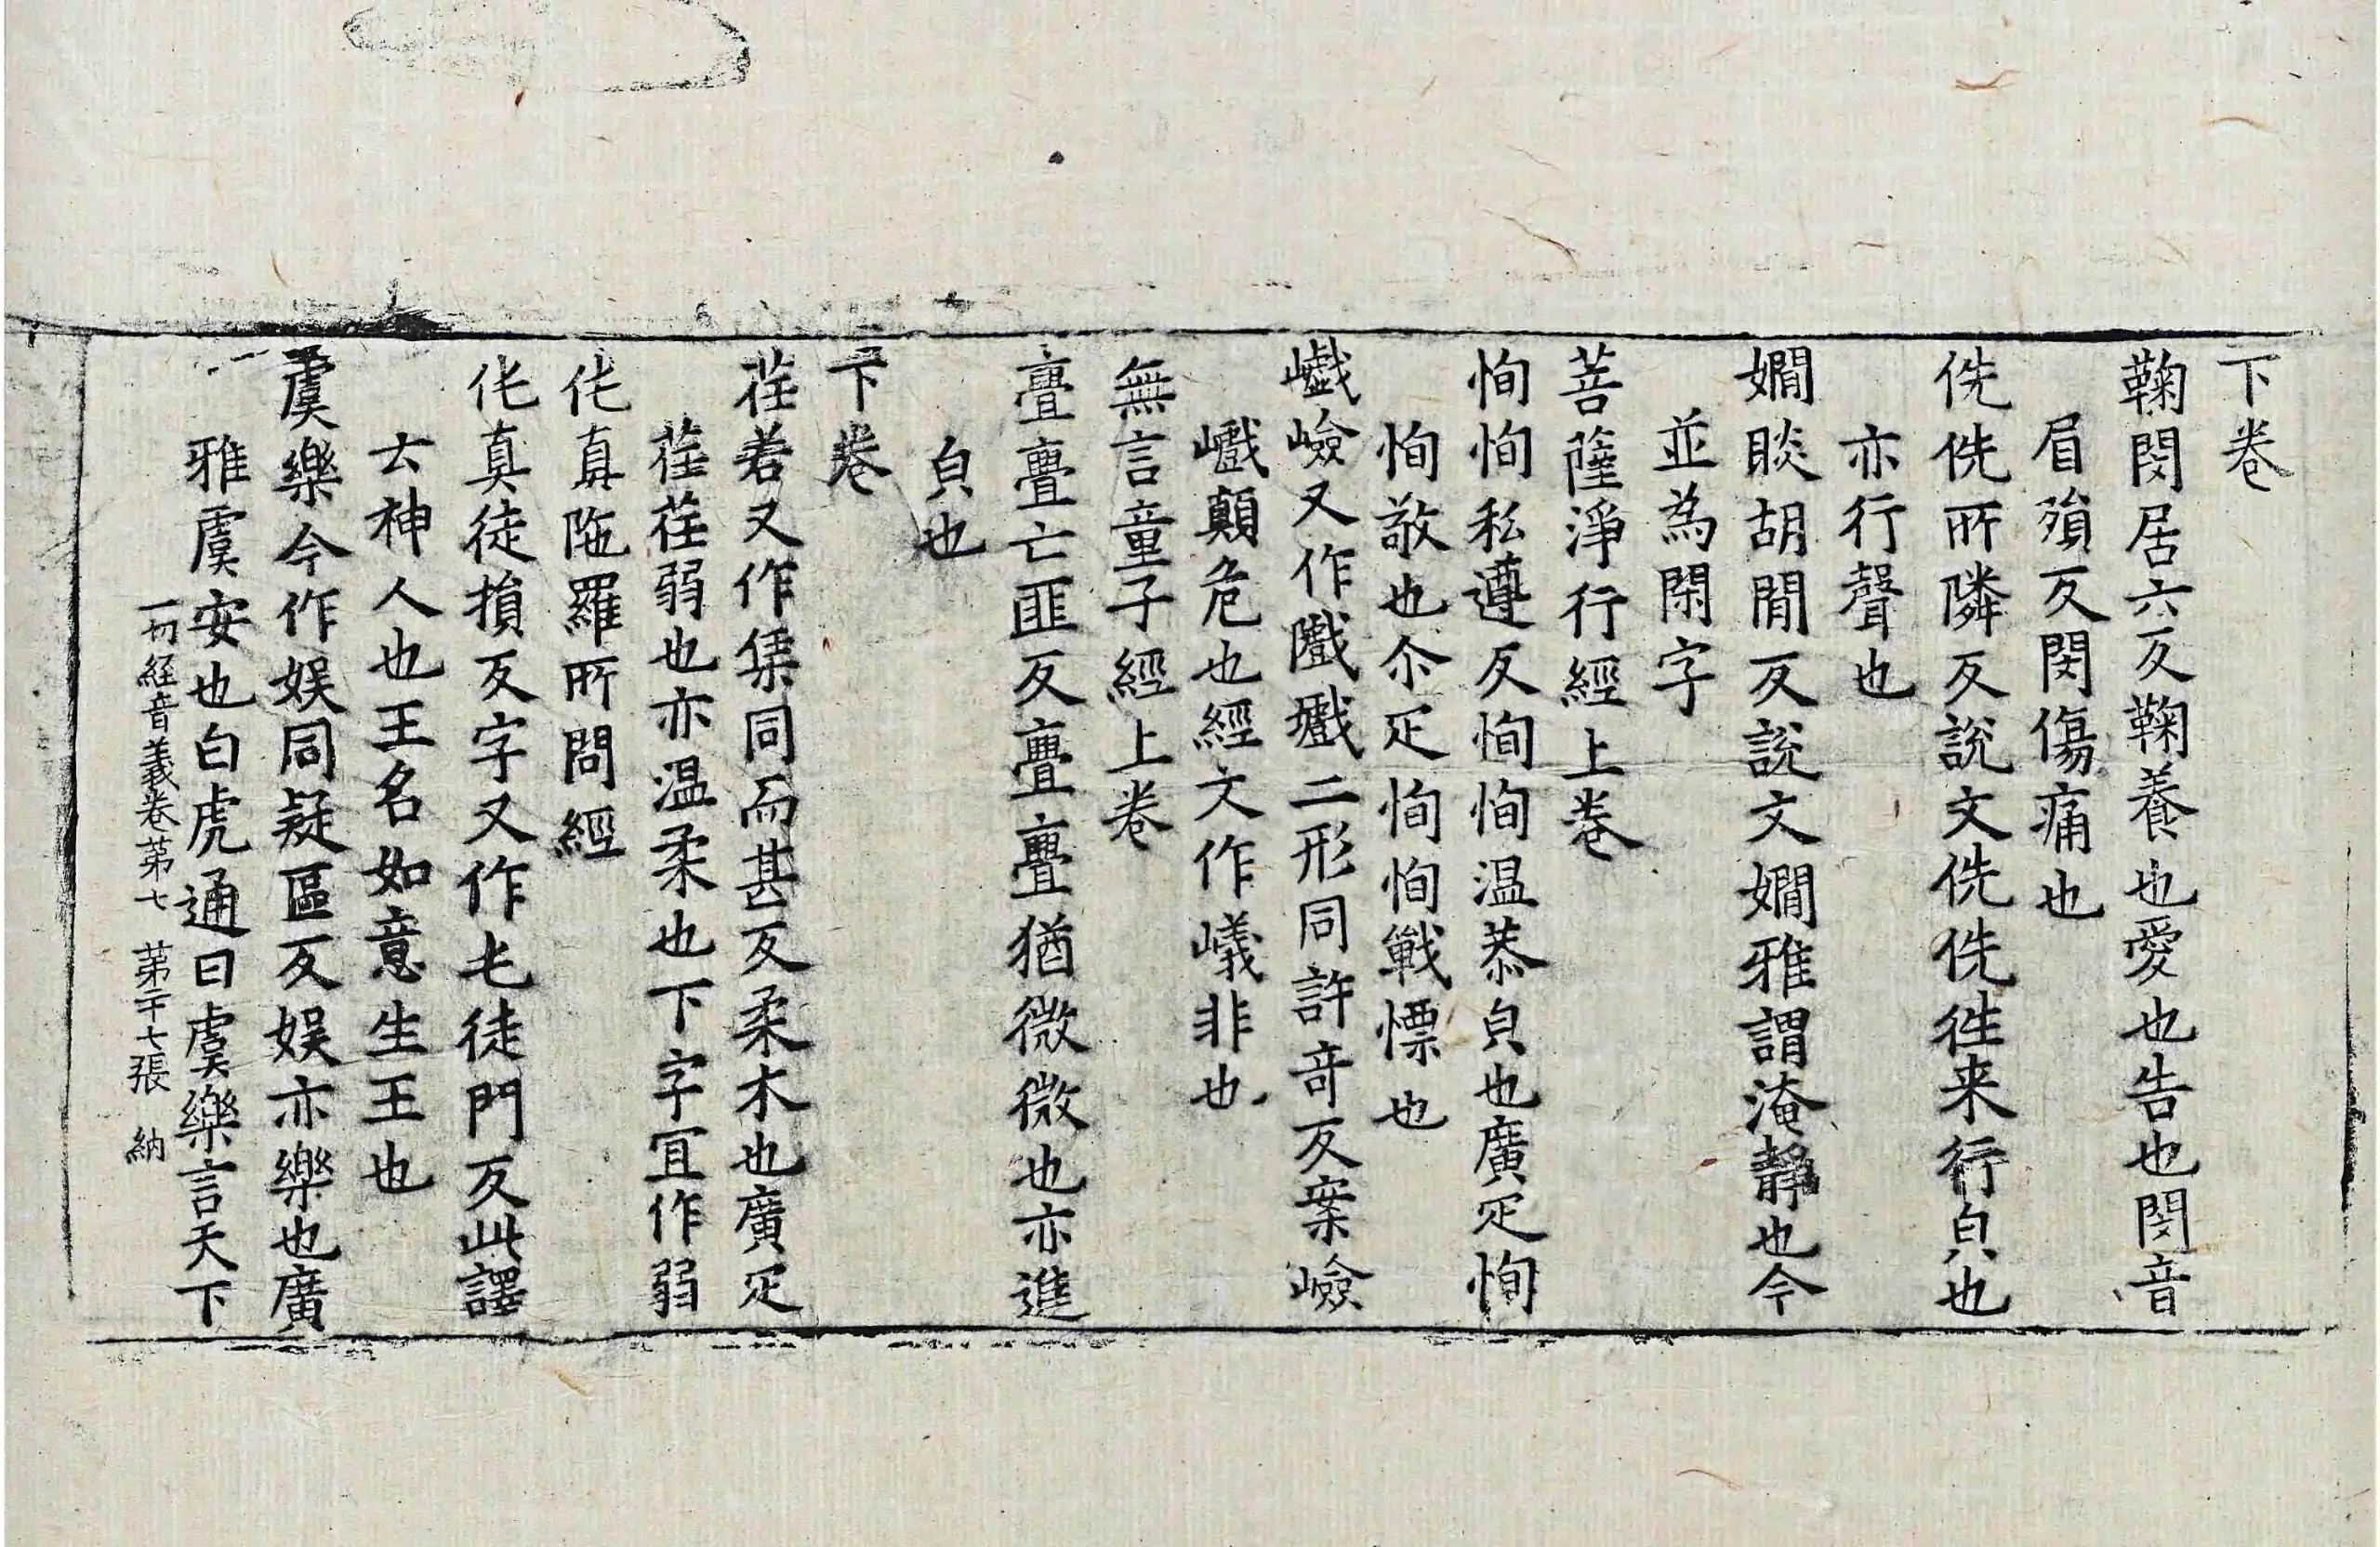 下卷
鞠閔居六反鞠養也愛也告也閔音
眉殞反閔傷痛也
侁侁所隣反說文侁侁往来行皃也
亦行聲也
嫺睒胡閒反說文嫺雅謂淹靜也今
並為閑字
菩薩淨行經上卷
恂恂私遵反恂恂温恭皃也廣疋恂
恂敬也尒疋恂恂戰慄也
巇嶮又作隵㠢二形同許竒反案嶮
巇顛危也經文作㠖非也
無言童子經上卷
亹亹亡匪反亹亹猶微微也亦進
皃也
下卷
荏若又作集同而甚反柔木也廣疋
荏荏弱也亦温柔也下字冝作弱
伅真陁羅所問經
伅真徒損反字又作屯徒門反此譯
云神人也王名如意生王也
虞樂今作娱同疑區反娱亦樂也廣
雅虞安也白虎通曰虞樂言天下
一切經音義卷第七 第二十七張 納